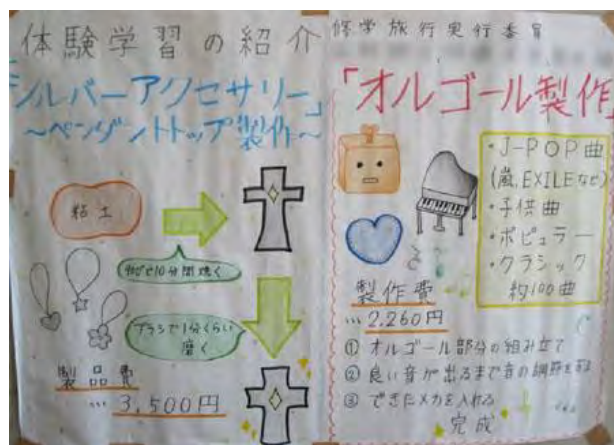 体験学習の紹介
「シルバーアクセサリー」
～ペンダントトップ製作～
粘土
900℃で10分間焼く
ブラシで1分くらい
磨く
製品費
… 3,500円
修学旅行実行委員
「オルゴール製作」
・J-POP曲
(嵐,EXILEなど)
・子供曲
・ポピュラー
・クラシック
約100曲
製作費
…2,260円
① オルゴール部分の組み立て
② 良い音が出るまで音の調節をする
③ できたメカを入れる
完成